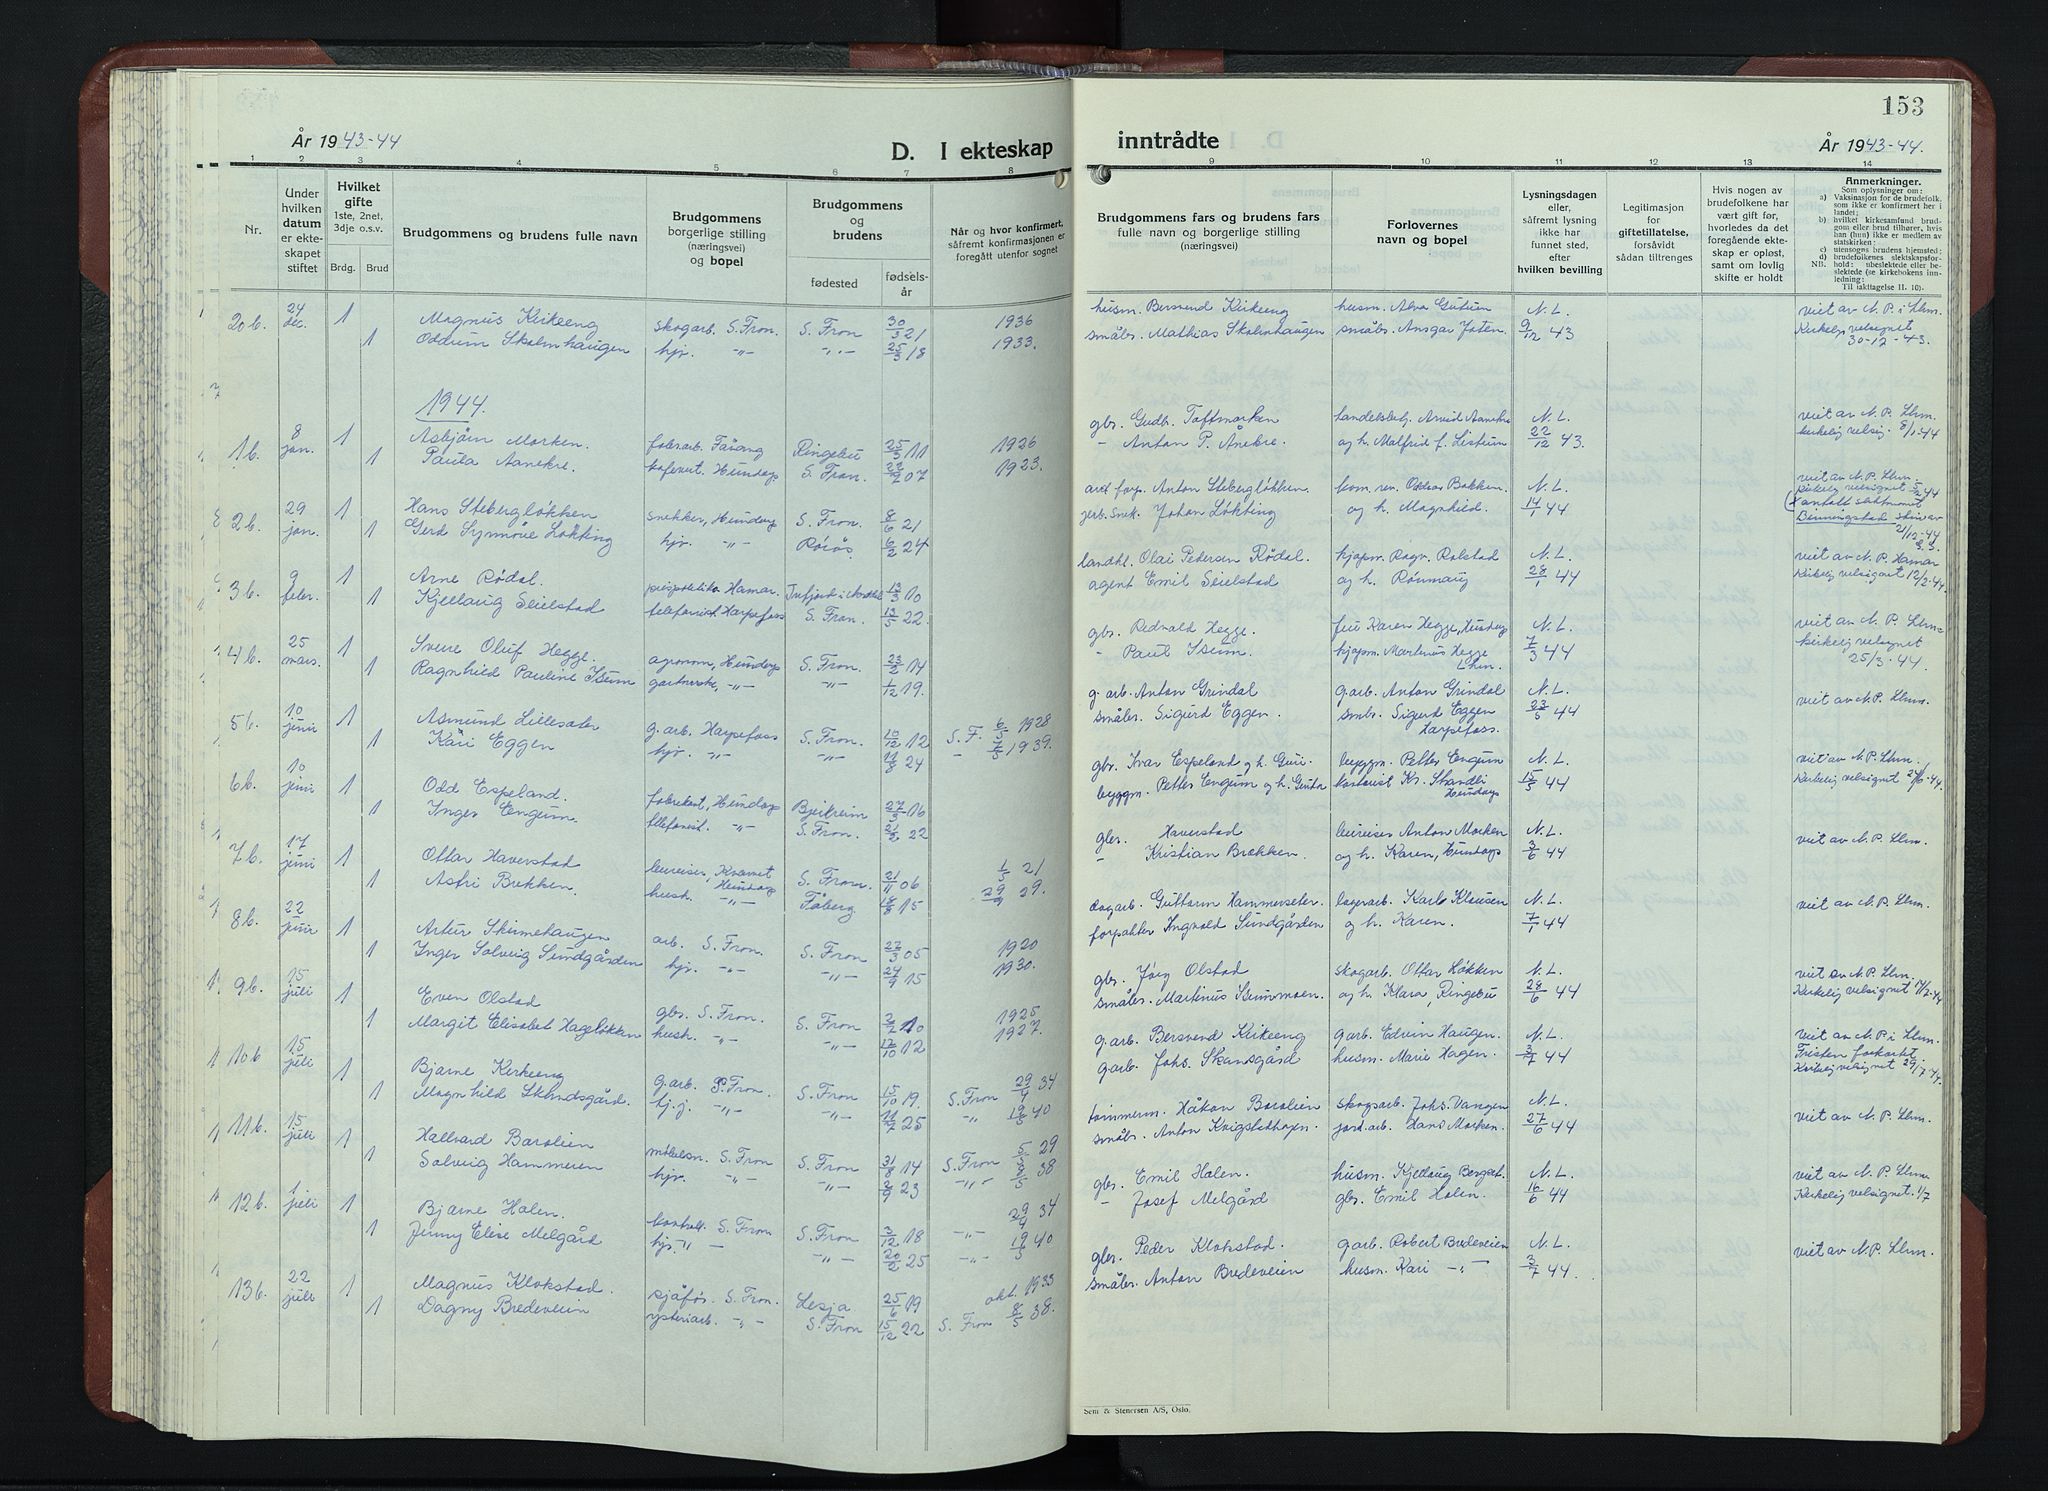 153
År 1943-44
D. I ekteskap
inntrådte
År 1943-44.
1 2 3 4 5 6 7 8 9 10 11 12 13 14
Nr.
Under hvilken datum er ekteskapet stiftet
Hvilket gifte
1ste, 2net, 3dje o.s.v.
Brdg. Brud
Brudgommens og brudens fulle navn
Brudgommens borgerlige stilling (næringsvei) og bopel
Brudgommens og brudens
fødested
fødselsår
Når og hvor konfirmert, såfremt konfirmasjonen er foregått utenfor sognet
Brudgommens fars og brudens fars fulle navn og borgerlige stilling (næringsvei)
Forlovernes navn og bopel
Lysningsdagen eller, såfremt lysning ikke har funnet sted, efter hvilken bevilling
Legitimasjon for giftetillatelse, forsåvidt sådan tiltrenges
Hvis nogen av brudefolkene har vært gift før, hvorledes da det foregående ekteskap er opløst, samt om lovlig skifte er holdt
Anmerkninger.
Som oplysninger om:
a) Vaksinasjon for de brudefolk, som ikke er konfirmert her i landet;
b) hvilket kirkesamfund brudgom eller brud tilhører, hvis han (hun) ikke er medlem av statskirken:
c) utensogns brudens hjemsted:
d) brudefolkenes slektskapsforhold:
NB. ubeslektede eller beslektede (se kirkebokens innledning:
Til iakttagelse II. 10).
20 b. 24 dec. 1 Magnus Kirkeeng skogarb. S. Fron. S. Fron 30/3 21 1936 husm. Bersvend Kirkeeng N. L. viet av N. P. i Lhm.
1 Skolmhaugen hjv. -"- -"- 25/3 18 1933. småbr. Mathias Skolmhaugen småbr. Ansgar 9/12 43 Kirkelig velsignet 30-12-43.
1944.
1 b. 8 jan. 1 Asbjørn Morken. Ringebu 25/5 11 1926 gbr. Gudb. Toftmorken Arvid Aanekre N. L. viet av N. P. Lhm.
1 Paula Aanekre. Hundorp S. Fron. 07 1923. - Anton P. Ånekre. og h. Malfrid f. Listum 22/12 43. kirkelig velsig. 8/1-44
2 b. 29 jan. 1 Hans Stebergløkken snekker, Hundorp S. Fron. 8/6 21 Anton Stebergløkken. Bakken. N. L. viet av N. P. Lhm.
1 Gerd Synnøve Løkting hjv. -"- Røros 6/2 24 Johan Løkting og h. Magnhild. 14/1 44
3 b. 9 feber. 1 Arne Rødal. Hamar. 13/3 10 landhl. Olai Pedersen Rødal. kjøpm. Ragn. Rolstad N. L. viet av N. P. Hamar
1 Kjellaug Seielstad telefonist. Harpefoss S. Fron. 13/5 22. agent Emil Seielstad og h. Rønnaug 28/1 44 Kirkelig velsignet 12/2-44.
4 b. 25 mars. 1 Sverre Oluf Hegge. agronom, Hundorp S. Fron. 23/2 14 gbr. Redvald Hegge. fru Karen Hegge, Hundorp N. L. viet av N. P. Lhm-
1 Ragnhild Pauline Iseum gartnerske, -"- -"- 1/12 19. - Paul Iseum. kjøpm. Martinus Hegge Lhm. 7/3 44 kirkelig velsignet 25/3-44.
5 b. 10 juni 1 Asmund Lillesæter g. arb. Harpefoss S. Fron. 10/12 12 S. F. 1928 g. arb. Anton Grindal g.arb. Anton Grindal N. L. viet av N.P. Lhm.
1 Kari Eggen hjv. -"- -"- 11/8 24 - 1939. småbr. Sigurd Eggen. smbr. Sigurd Eggen Harpefoss. 23/5 44
6 b. 10 juni 1 Odd Espeland. fabrikant, Hundorp Bjerkreim 16 gbr. Ivar Espeland og h. Guri byggm. Petter Engum N. L. viet av N. P. Lhm.
1 Inger Engum. telefonist. -"- S. Fron. 22 byggm. Petter Engum og h. Kr. Strandli Hundorp 15/5 44 Kirkelig velsignet
7 b. 17 juni 1 Ottar Haverstad bureiser, Hundorp S. Fron. 21/11 06 21 gbr. Haverstad bureiser Anton Morken N. L. viet av N. P. Lhm.
1 Astri Brekken. hush. -"- Fåberg 18/8 15 29. - Kristian Brekken. og h. Karen, Hundorp 3/6 44
8 b. 22 juni 1 Artur Skinnehaugen arb. S. Fron. S. Fron 05 1920 Hammerseter. lagerarb. Karl Klausen N. L. viet av N. P. Lhm.
1 Inger Solveig Sundgården hjv. -"- -"- 24/9 15 1930. forpakter Ingvald Sundgården og h. Karen. 7/1 44
9 b. 15 juli 1 Even Olstad gbr. S. Fron. S. Fron 10 1925 gbr. Olstad skogarb. Ottar Løkken N. L. viet av N. P. Lhm.
1 Margit Elisabet Hageløkken hush. -"- -"- 17/10 12 1927. småbr. Martinus og h. Klara Ringebu 28/6 44 Kirkelig velsignet
10 b 15 juli 1 Bjarne Kirkeeng g. arb. S. Fron. S. Fron 15/10 19. S. Fron 29/4 34 g.arb. Bersvend Kirkeeng g.arb. Edvin Haugen. N. L. viet av N. P. i Lhm.
1 Magnhild Skansgård. hj. j. -"- -"- 25 -"- 40 garb. Johs. Skansgård husm. Marie Hagen. 3/7 44 Fristen forkortet. Kirkelig velsignet 29/7-44.
11 b. 15 juli 1 Hallvard Barolien S. Fron S. Fron 31/8 14 S. Fron 29 tømmerm. Håkon Barolien skogsarb. Johs. Vangen N. L. viet av N. P. Lhm.
1 Solveig Hammeren hjv. -"- -"- 2/9 23 -"- 38 småbr. Anton jord.arb. Hans Morken. 27/6 44
12 b. 1 juli 1 Bjarne Halen. S. Fron S. Fron 3/12 18 -"- 29/4 34 gbr. Emil Halen. husm. Kjellaug N. L. viet av N. P. Lhm.
1 Jenny Elise Melgård hjv. -"- -"- 20/2 25 -"- 40 - Josef Melgård gbr. Emil Halen. 16/6 44 Kirkelig velsignet. 1/7
13 b. 22 juli 1 Magnus Klokstad. sjåfør. S. Fron. Lesja 25/6 19 okt. 1933 gbr. Peder Klokstad. g.arb. Robert Bredeveien N. L. viet av N. P. Lhm.
1 Dagny Bredeveien ysteriarb. -"- S. Fron 15/12 22 S. Fron 8/5 38. småbr. Anton Bredeveien husm. Kari -"- 3/7 44.
Sem & Stenersen A/S, Oslo.